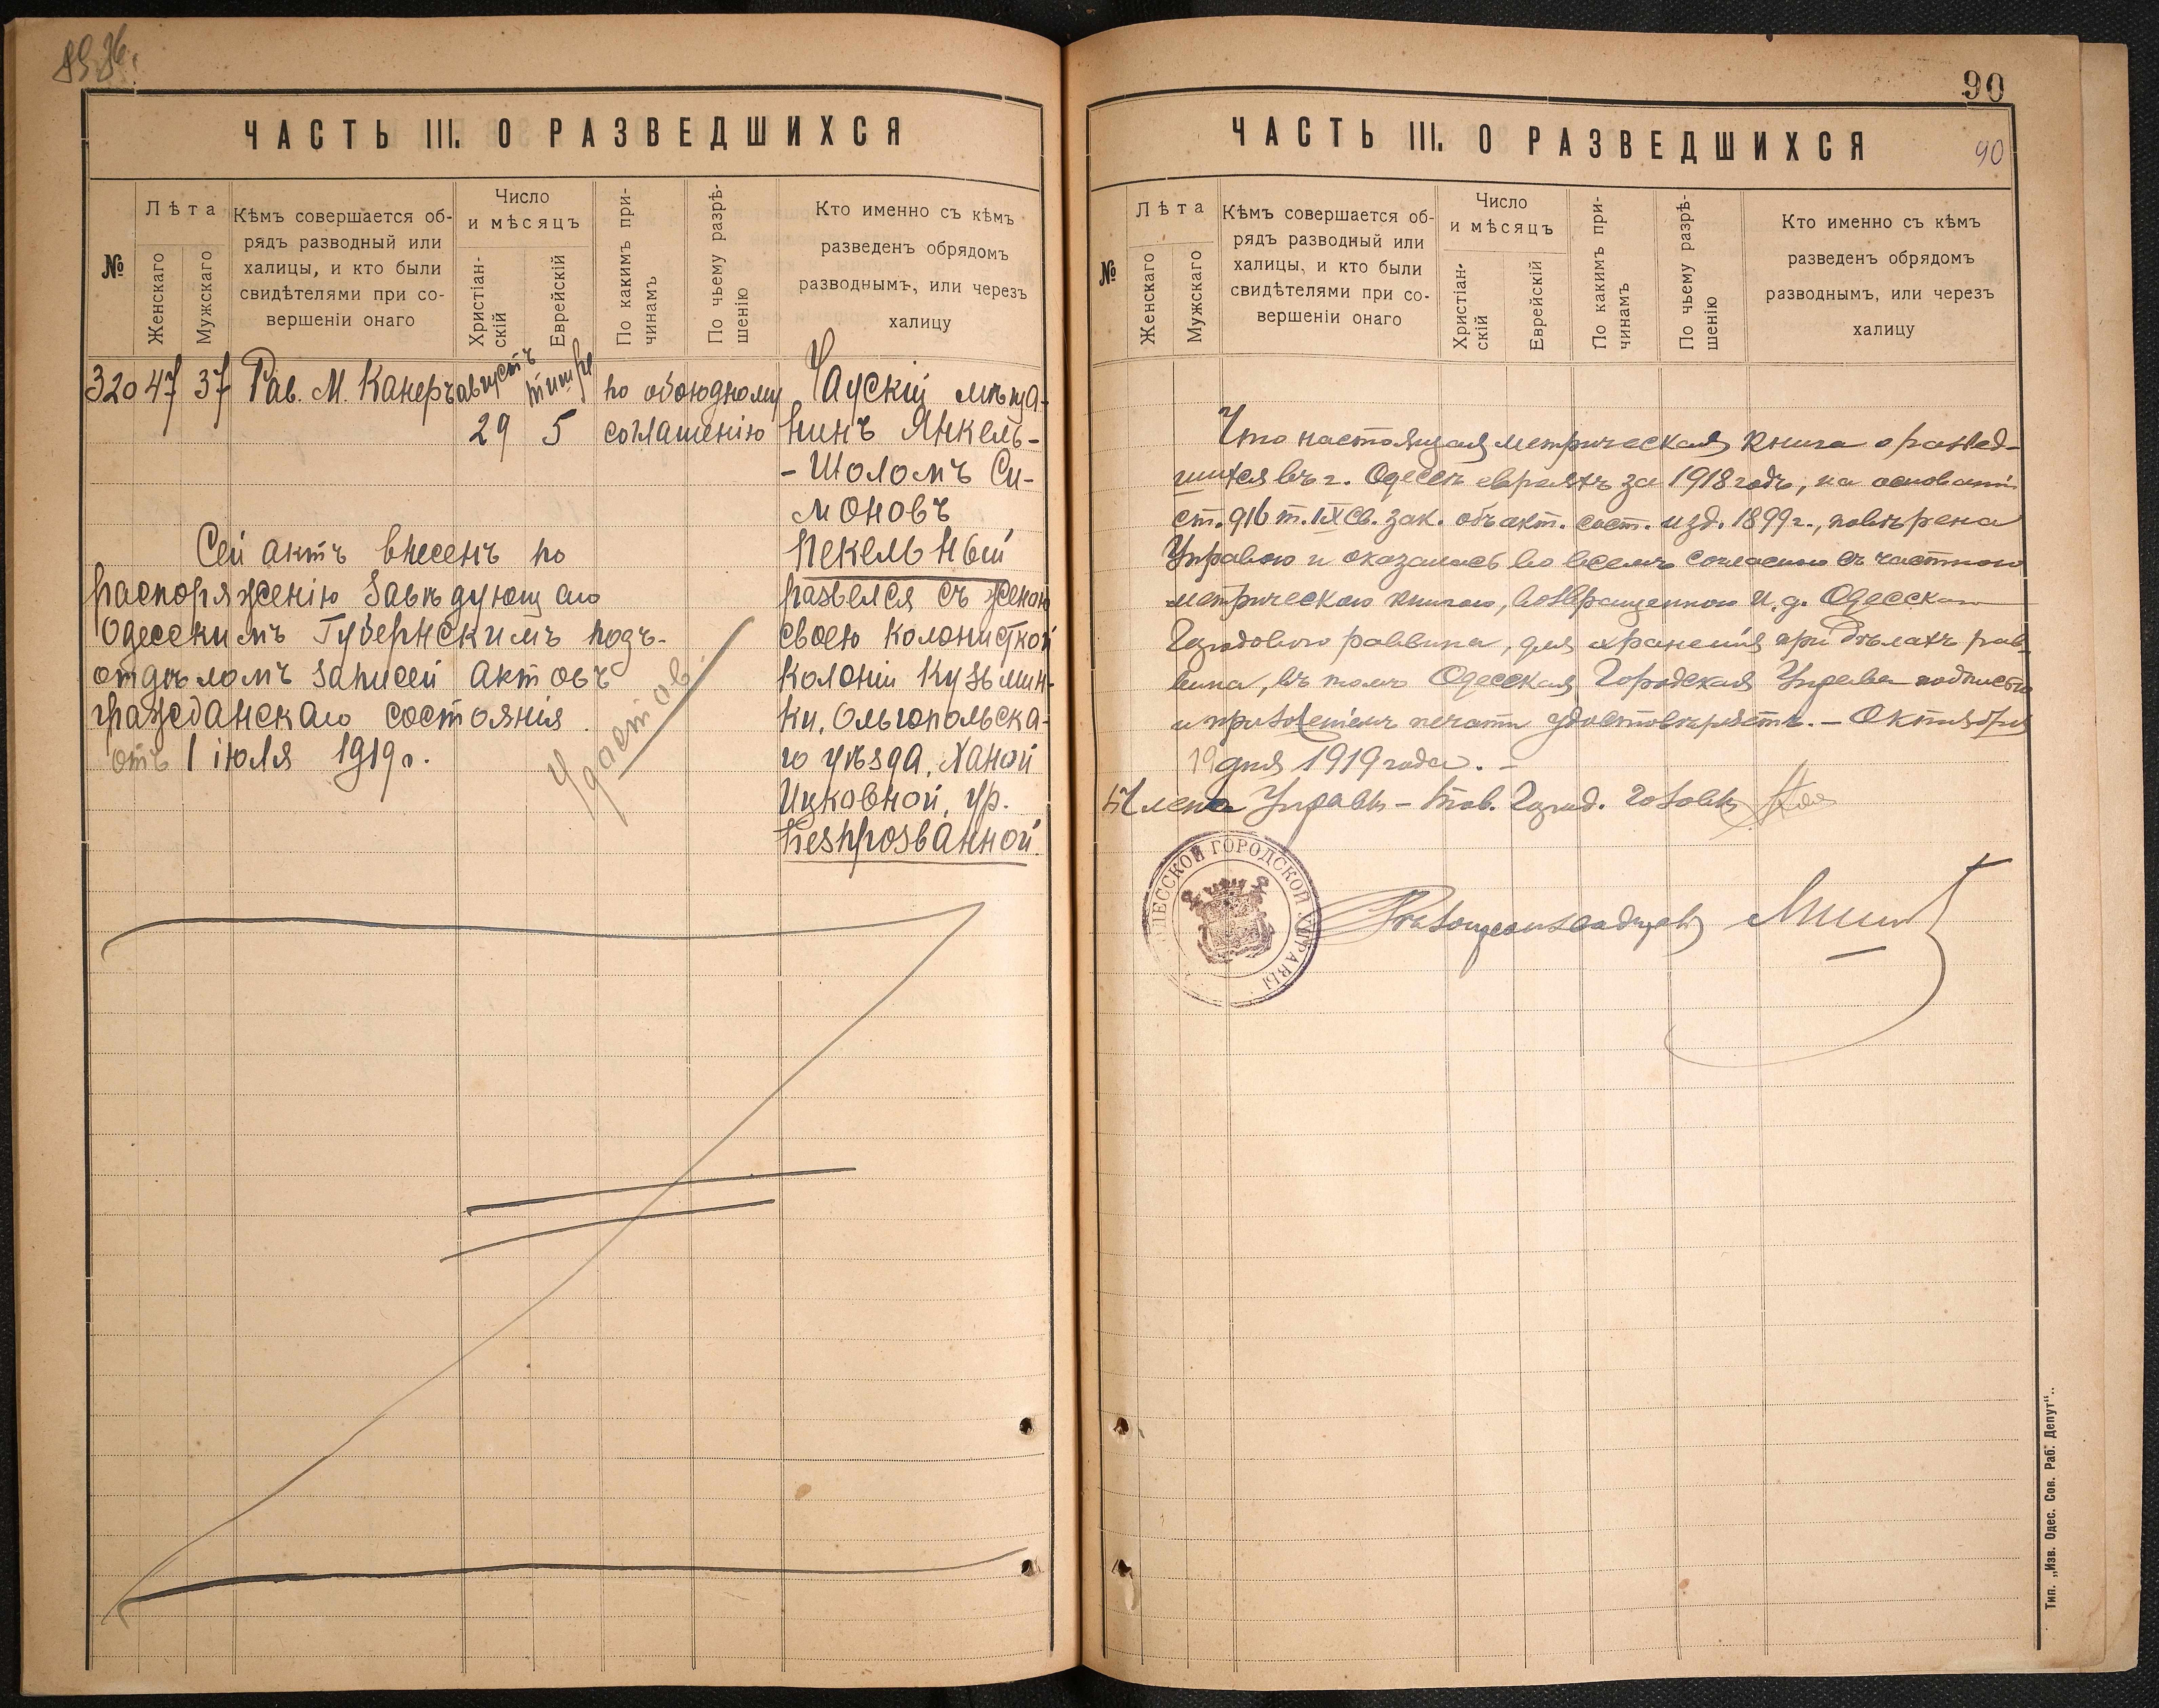 ЧАСТЬ III. О РАЗВЕДШИХСЯ
№
Лѣта
Женскаго
Мужскаго
Кѣмъ совершается об-
рядъ разводный или
халицы, и кто были
свидѣтелями при со-
вершеніи онаго
Число
и мѣсяцъ
Христіан-
скій
Еврейскій
По какимъ при-
чинамъ
По чьему разрѣ-
шенію
Кто именно съ кѣмъ
разведенъ обрядомъ
разводнымъ, или черезъ
халицу
320 47 37 Рав. М. Канеръ августъ тишре по обоюдному
29 5 соглашенію
Чаускій мѣща-
нинъ Янкель-
- Шоломъ Си-
моновъ
Пекельный
развелся съ женою
своею колонисткой
колоніи Кузьмин-
ки, Ольгопольска-
го уѣзда, Ханой
Ицковной, ур.
Безпрозванной.
Сей актъ внесенъ по
распоряженію Завѣдующаго
Одесскимъ Губернскимъ подъ-
отдѣломъ записей актовъ
гражданскаго состоянія
отъ 1 іюля 1919 г.
90
ЧАСТЬ III. О РАЗВЕДШИХСЯ
90
№
Лѣта
Женскаго
Мужскаго
Кѣмъ совершается об-
рядъ разводный или
халицы, и кто были
свидѣтелями при со-
вершеніи онаго
Число
и мѣсяцъ
Христіан-
скій
Еврейскій
По какимъ при-
чинамъ
По чьему разрѣ-
шенію
Кто именно съ кѣмъ
разведенъ обрядомъ
разводнымъ, или черезъ
халицу
Что настоящая метрическая книга о развед-
шихся въ г. Одессѣ евреяхъ за 1918 годъ, на основаніи
ст. 916 т. IX Св. зак. объ акт. сост. изд. 1899 г., повѣрена
Управою и оказалась во всемъ согласною съ частною
метрическою книгою, возвращенною и. д. Одесскаго
Городового раввина, для храненія при дѣлахъ рав-
вина, въ томъ Одесская Городская Управа подписью
и приложеніемъ печати удостовѣряетъ. – Октября
19 дня 1919 года. –
Члена Управы – Тов. Город. Головы
ОДЕССКОЙ ГОРОДСКОЙ УПРАВЫ
Тип. „Изв. Одес. Сов. Раб. Депут“..